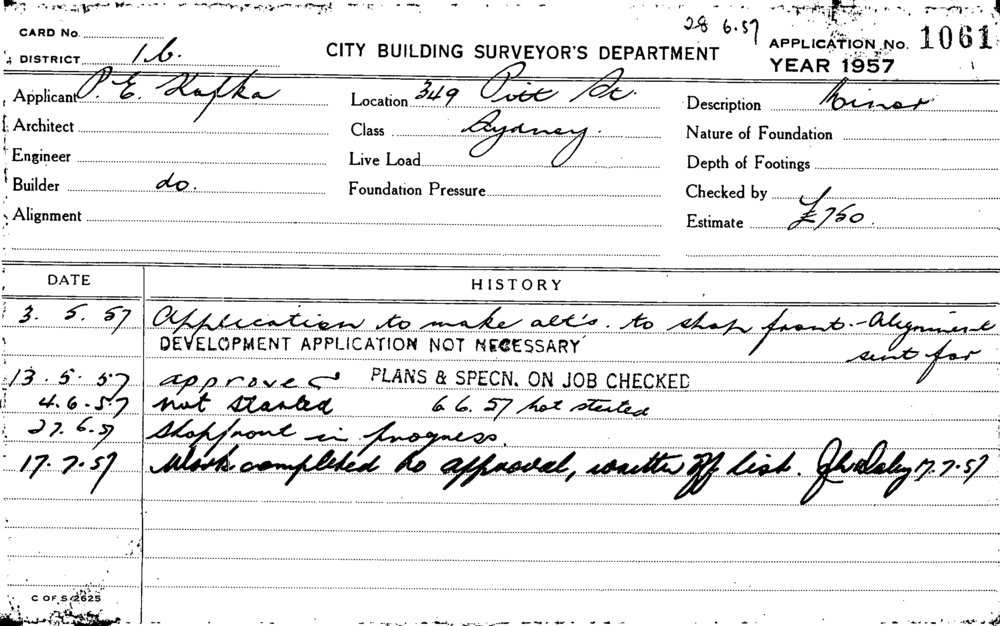 28 6.57
CARD No.
DISTRICT 1b.
CITY BUILDING SURVEYOR'S DEPARTMENT
APPLICATION No. 1061
YEAR 1957
Applicant P. E. Kafka
Location 349 Pitt St.
Description Minor
Architect
Class Sydney.
Nature of Foundation
Engineer
Live Load
Depth of Footings
Builder do.
Foundation Pressure
Checked by
Alignment
Estimate £750.
DATE HISTORY
3. 5. 57 Application to make alt's. to shop front. - Alignment
DEVELOPMENT APPLICATION NOT NECESSARY sent for
13. 5. 57 approved PLANS & SPECN. ON JOB CHECKED
4.6.57 not started 6 6. 57 not started
27.6.57 Shopfront in progress.
17.7.57 Work completed to approval, written off list. 17.7.57
C OF S 2625